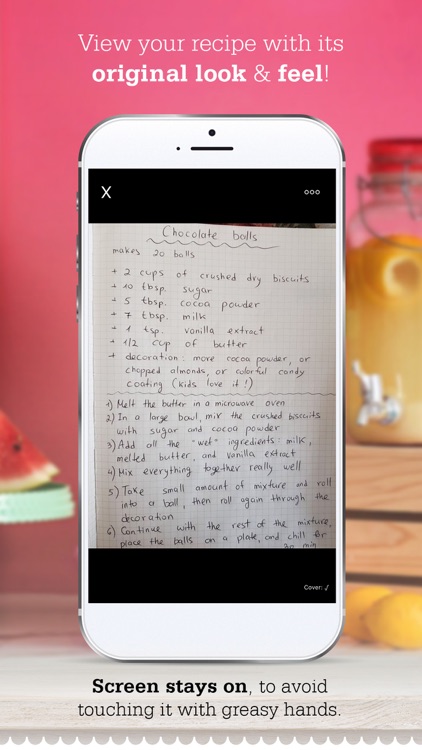 View your recipe with its
original look & feel!
X
Chocolate balls
makes 20 balls
+ 2 cups of crushed dry biscuits
+ 10 tbsp. sugar
+ 5 tbsp. cocoa powder
+ 7 tbsp. milk
+ 1 tsp. vanilla extract
+ 1/2 cup of butter
+ decoration: more cocoa powder, or
chopped almonds, or colorful candy
coating (kids love it!)
1) Melt the butter in a microwave oven
2) In a large bowl, mix the crushed biscuits
with sugar and cocoa powder
3) Add all the "wet" ingredients: milk,
melted butter, and vanilla extract
4) Mix everything together really well
5) Take small amount of mixture and roll
into a ball, then roll again through the
decoration
6) Continue with the rest of the mixture,
place the balls on a plate, and chill for
30 min
Cover: ✓
Screen stays on, to avoid
touching it with greasy hands.